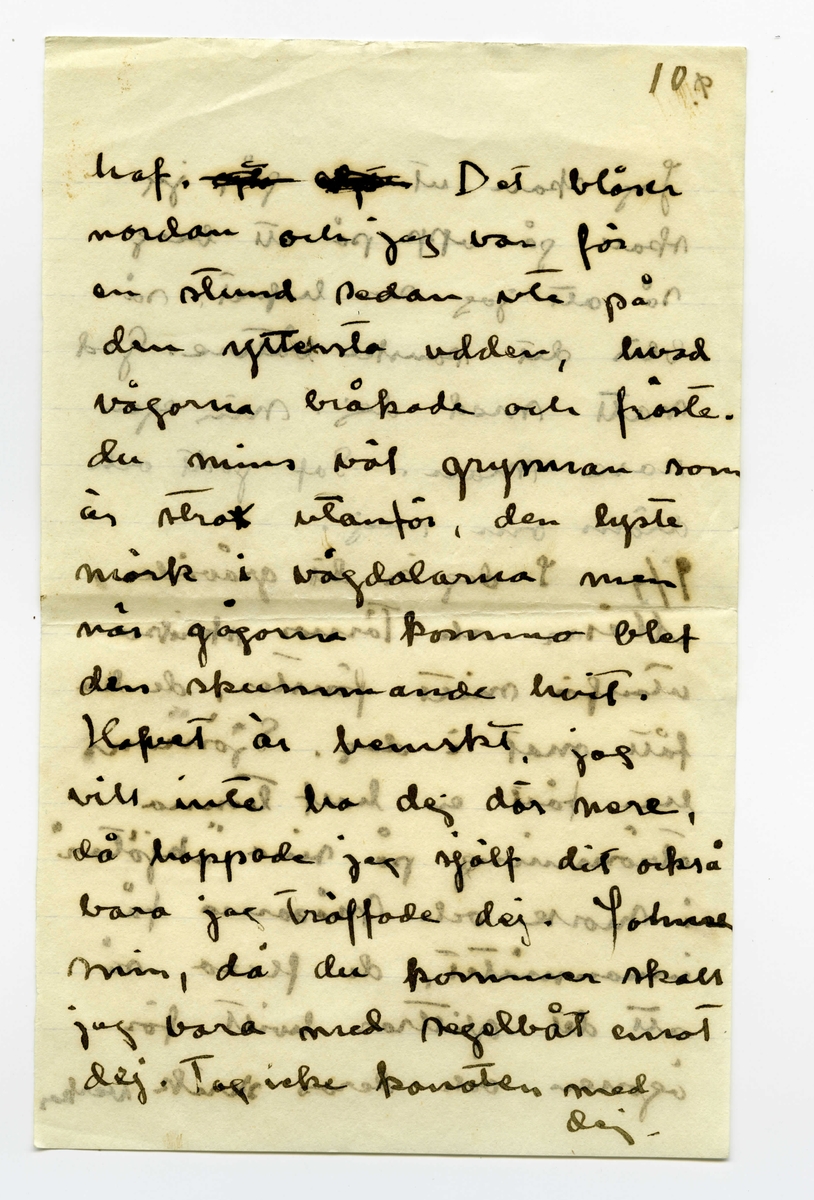 10
haf. Det blåser
nordan och jag var för
en stund sedan ute på
den yttersta udden, hvad
vågorna bråkade och fräste.
du mins väl grynnan som
är strax utanför, den lyste
mörk i vågdalarna men
när gågorna kommo blef
den skummande hvit.
Hafvet är hemskt, jag
vill inte ha dej där nere,
då hoppade jag själf dit också
bara jag träffade dej. Johnse
min, då du kommer skall
jag vara med segelbåt emot
dej. Tag icke kanoten med
dej.